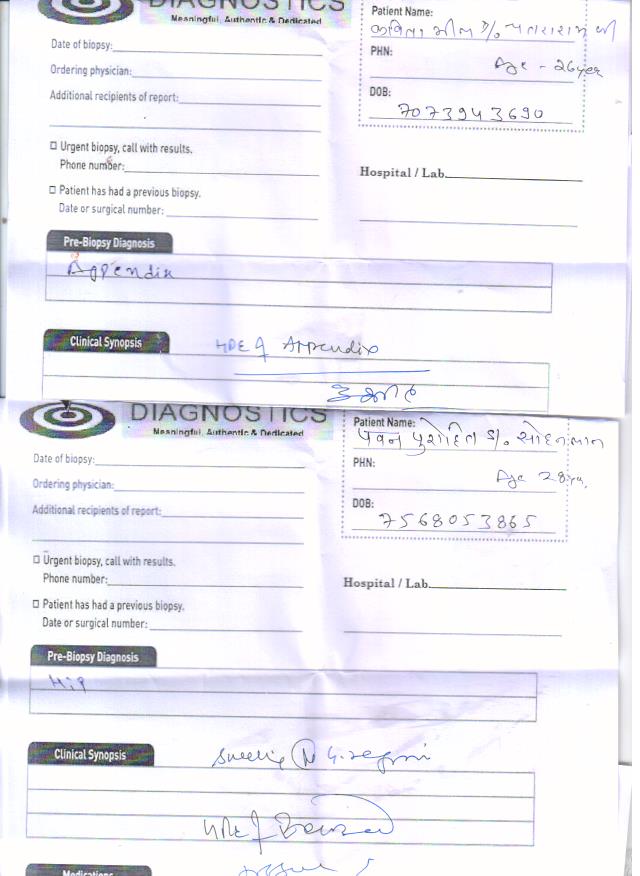 DIAGNOSTICS
Meaningful, Authentic & Dedicated
Patient Name:
कविता भील D/o
PHN:
Age - 26 yer
DOB:
7073943690
Date of biopsy:
Ordering physician:
Additional recipients of report:
Urgent biopsy, call with results.
Phone number:
Patient has had a previous biopsy.
Date or surgical number:
Hospital / Lab.
Pre-Biopsy Diagnosis
Appendix
Clinical Synopsis
HPE of Appendix
DIAGNOSTICS
Meaningful, Authentic & Dedicated
Patient Name:
पवन पुरोहित S/o सोहनलाल
PHN:
Age 28
DOB:
7568053865
Date of biopsy:
Ordering physician:
Additional recipients of report:
Urgent biopsy, call with results.
Phone number:
Patient has had a previous biopsy.
Date or surgical number:
Hospital / Lab.
Pre-Biopsy Diagnosis
Hip
Clinical Synopsis
HPE of
Medications